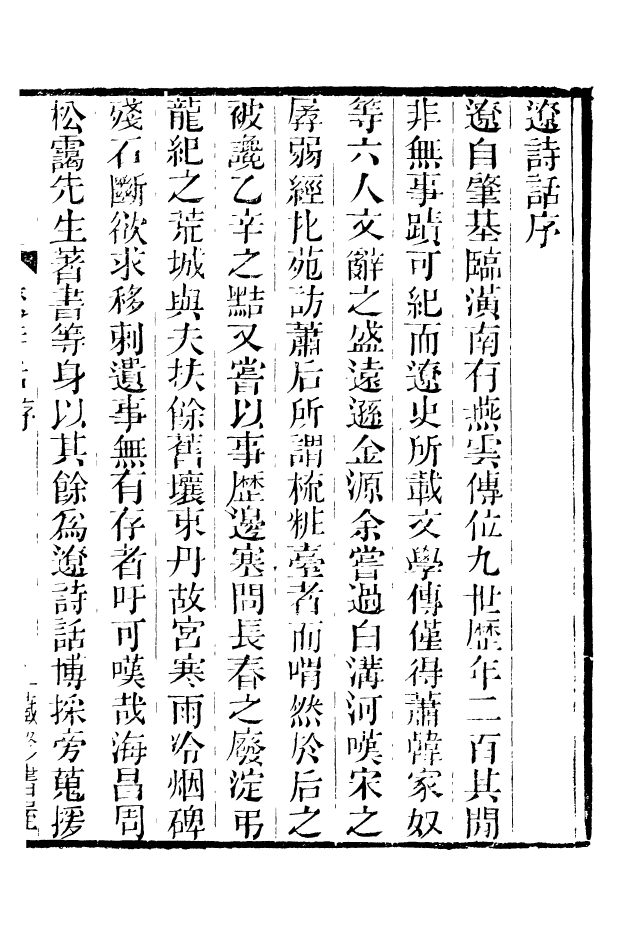 遼詩話序
遼自肇基臨潢南有燕雲傳位九世歷年二百其閒
非無事蹟可紀而遼史所載文學傳僅得蕭韓家奴
等六人文辭之盛遠遜金源余嘗過白溝河嘆宋之
孱弱經北苑訪蕭后所謂梳粧臺者而喟然於后之
被讒乙辛之黠又嘗以事歷邊塞問長春之廢淀弔
龍紀之荒城與夫扶餘舊壤東丹故宮寒雨冷烟碑
殘石斷欲求移剌遺事無有存者吁可嘆哉海昌周
松靄先生著書等身以其餘爲遼詩話博採旁蒐援
序
一藏修書屋